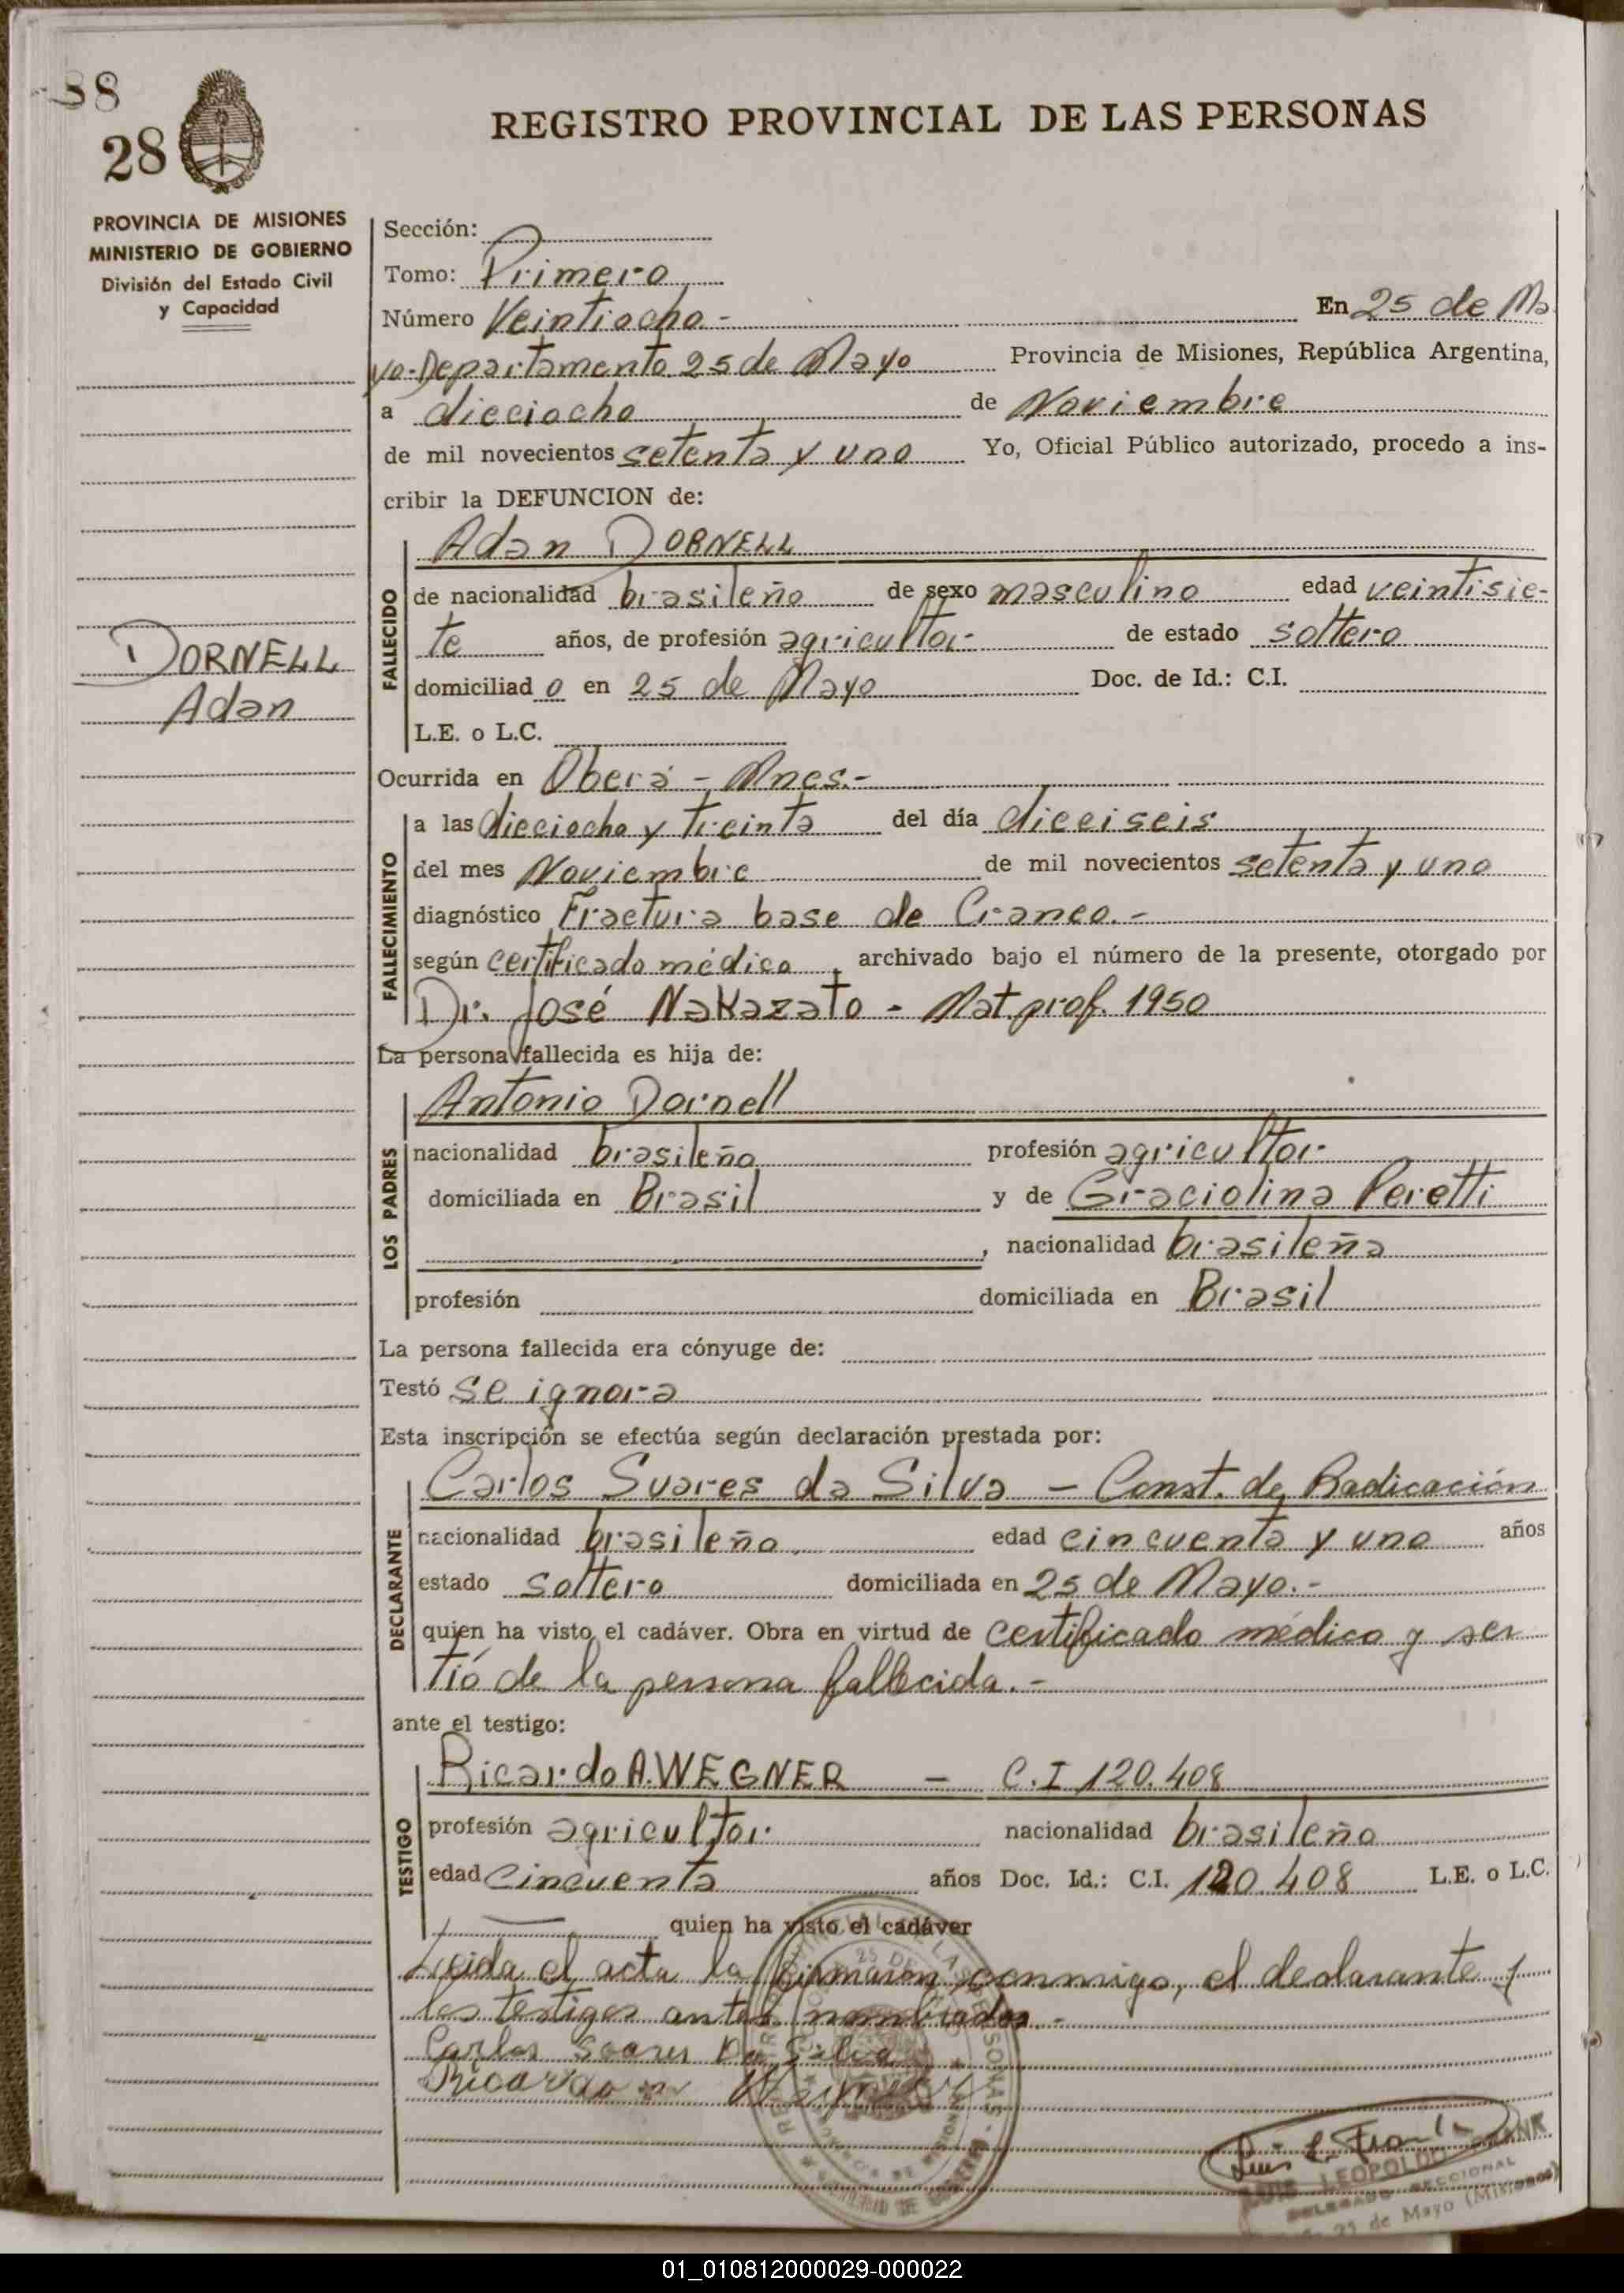 38
28
REGISTRO PROVINCIAL DE LAS PERSONAS
PROVINCIA DE MISIONES
MINISTERIO DE GOBIERNO
División del Estado Civil
y Capacidad
Sección:
Tomo: Primero
Número Veintiocho.- En 25 de Ma
yo-Departamento 25 de Mayo Provincia de Misiones, República Argentina,
a dieciocho de Noviembre
de mil novecientos setenta y uno Yo, Oficial Público autorizado, procedo a ins-
cribir la DEFUNCION de:
DORNELL
Adan
FALLECIDO
Adan DORNELL
de nacionalidad brasileño de sexo masculino edad veintisie-
te años, de profesión agricultor de estado soltero
domiciliado en 25 de Mayo Doc. de Id.: C.I.
L.E. o L.C.
Ocurrida en Oberá - Mnes.-
FALLECIMIENTO
a las dieciocho y treinta del día dieciseis
del mes Noviembre de mil novecientos setenta y uno
diagnóstico Fractura base de Craneo.-
según certificado médico, archivado bajo el número de la presente, otorgado por
Dr. José Nakazato - Mat. prof. 1950
La persona fallecida es hija de:
LOS PADRES
Antonio Dornell
nacionalidad brasileño profesión agricultor
domiciliada en Brasil y de Graciolina Peretti
, nacionalidad brasileña
profesión domiciliada en Brasil
La persona fallecida era cónyuge de:
Testó se ignora
Esta inscripción se efectúa según declaración prestada por:
DECLARANTE
Carlos Suares da Silva - Const. de Radicación
nacionalidad brasileño edad cincuenta y uno años
estado soltero domiciliada en 25 de Mayo.-
quien ha visto el cadáver. Obra en virtud de certificado médico y ser
tió de la persona fallecida.-
ante el testigo:
TESTIGO
Ricardo A. WEGNER - C.I 120.408
profesión agricultor nacionalidad brasileño
edad cincuenta años Doc. Id.: C.I. 120.408 L.E. o L.C.
quien ha visto el cadáver
Leida el acta la firmaron conmigo, el declarante y
los testigos antes nombrados.-
Carlos Soares Da Silva
Ricardo Wegner
Luis L. Frank
LUIS LEOPOLDO FRANK
DELEGADO SECCIONAL
25 de Mayo (Misiones)
01_010812000029-000022